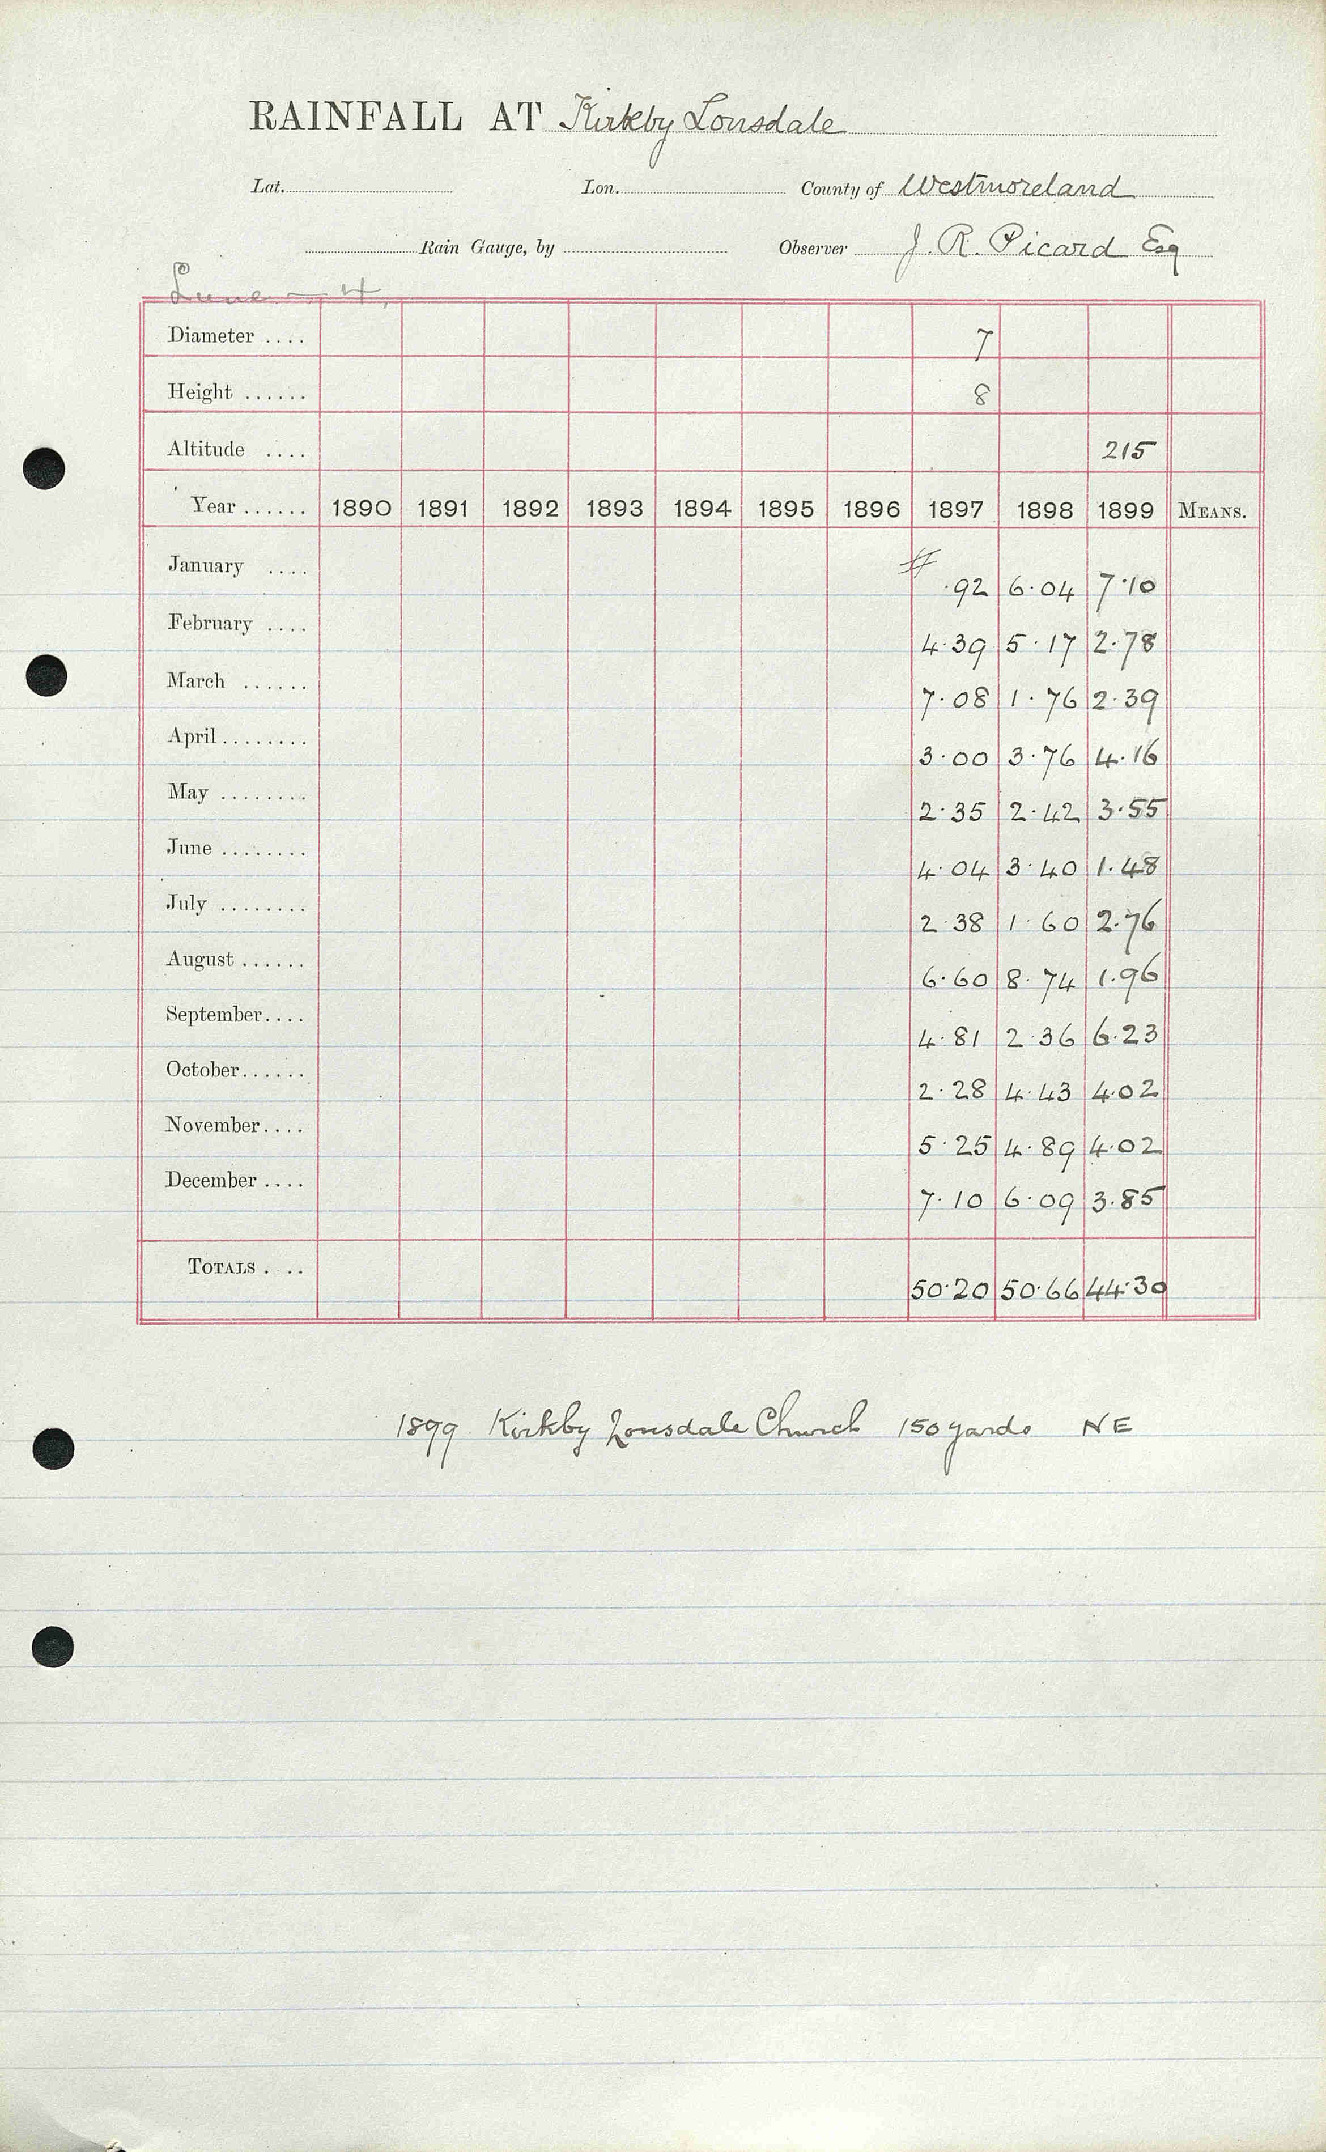 RAINFALL AT Kirkby Lonsdale
Lat. Lon. County of Westmoreland
Rain Gauge, by Observer J. R. Picard Esq
Lune — 4.
Diameter .... 7
Height ...... 8
Altitude .... 215
Year ...... 1890 1891 1892 1893 1894 1895 1896 1897 1898 1899 MEANS.
January .... # .92 6.04 7.10
February .... 4.39 5.17 2.78
March ...... 7.08 1.76 2.39
April........ 3.00 3.76 4.16
May ........ 2.35 2.42 3.55
June ........ 4.04 3.40 1.48
July ........ 2.38 1.60 2.76
August ...... 6.60 8.74 1.96
September.... 4.81 2.36 6.23
October...... 2.28 4.43 4.02
November.... 5.25 4.89 4.02
December .... 7.10 6.09 3.85
TOTALS . .. 50.20 50.66 44.30
1899 Kirkby Lonsdale Church 150 yards NE